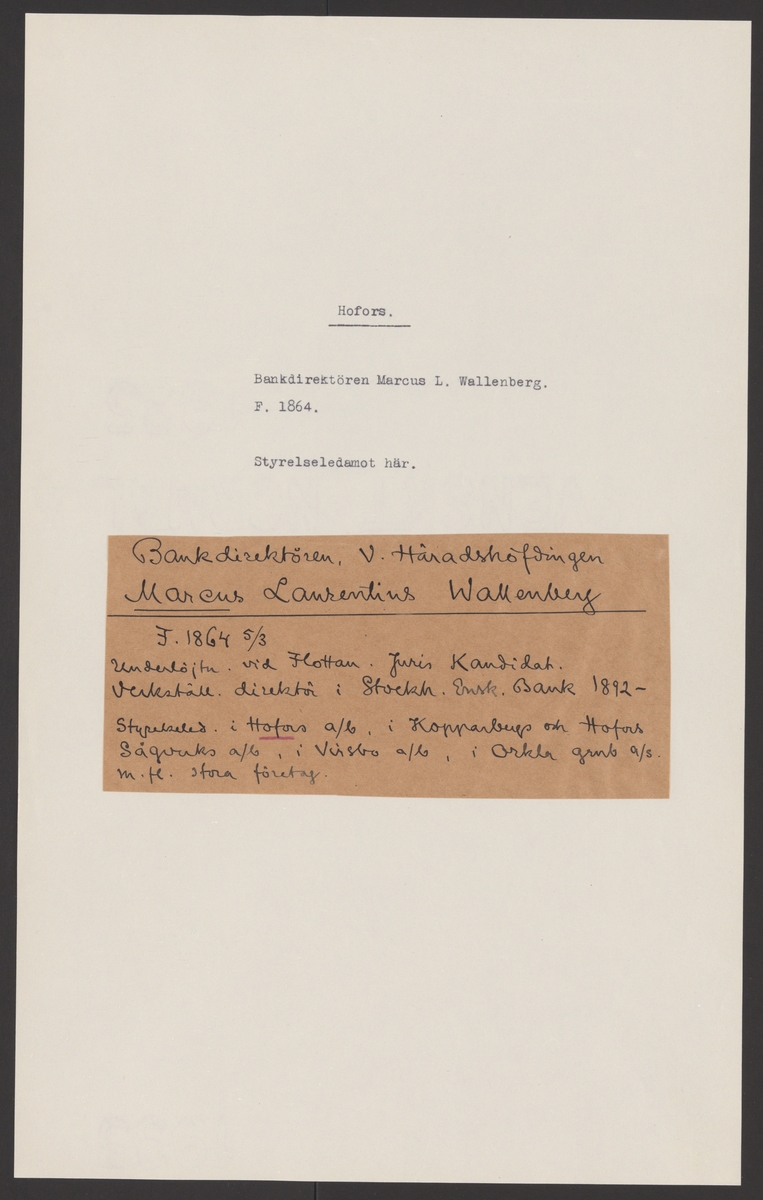 Hofors.
Bankdirektören Marcus L. Wallenberg.
F. 1864.
Styrelseledamot här.
Bankdirektören, V. Häradshöfdingen
Marcus Laurentius Wallenberg
F. 1864 5/3
Underlöjtn. vid Flottan. Juris Kandidat.
Verkställ. direktör i Stockh. Ensk. Bank 1892-
Styrelseled. i Hofors a/b, i Kopparbergs och Hofors
Sågverks a/b, i Virsbo a/b, i Orkla grub a/s.
m. fl. stora företag.